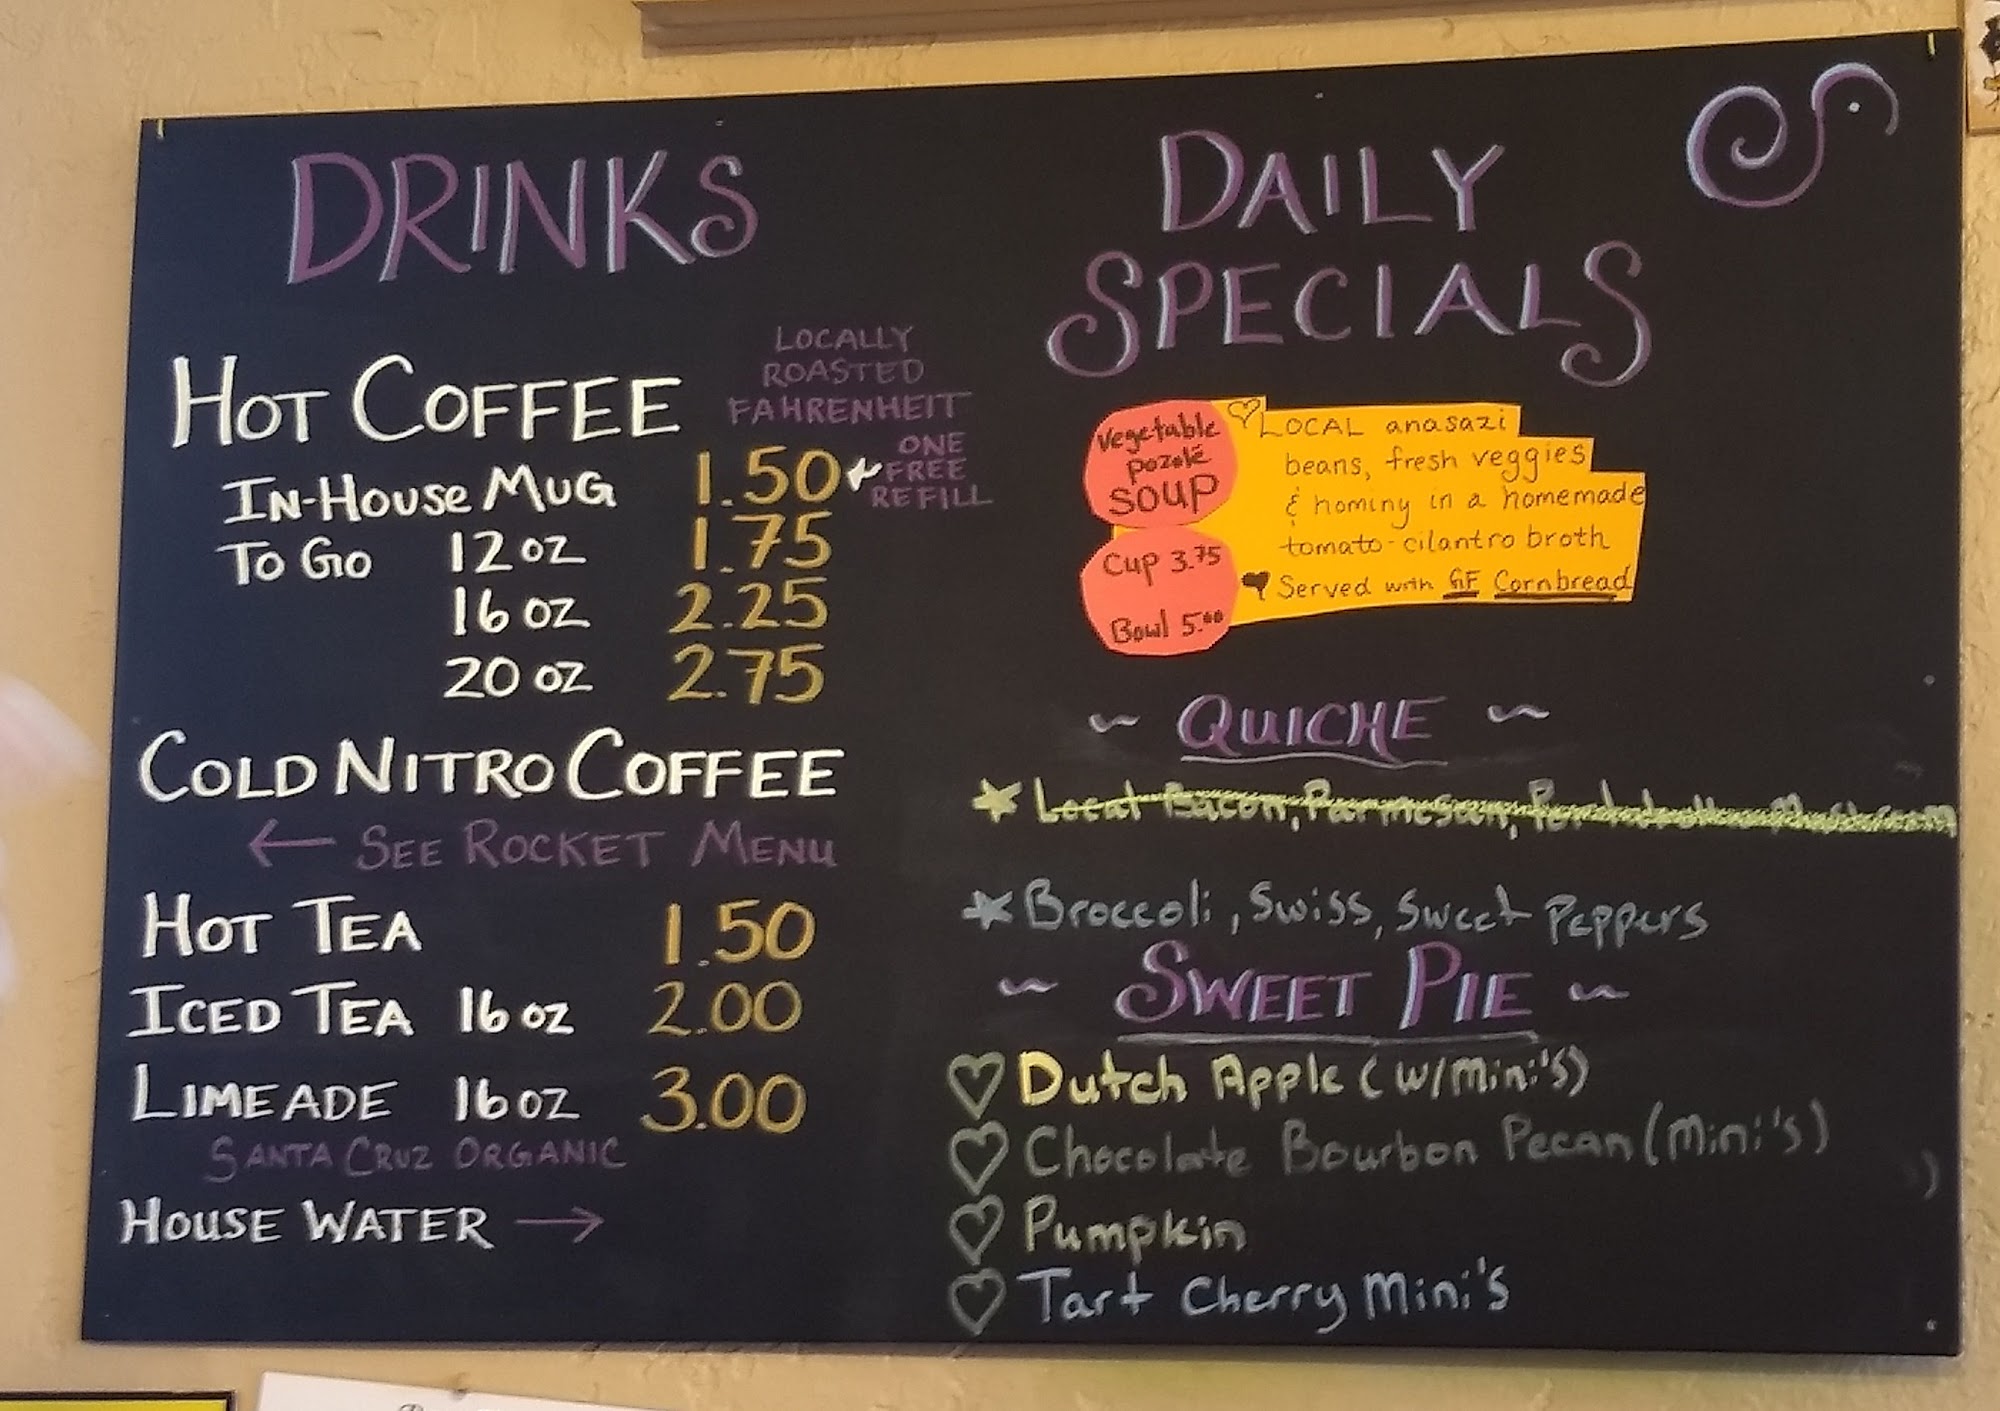 DRINKS
HOT COFFEE
LOCALLY
ROASTED
FAHRENHEIT
IN-HOUSE MUG 1.50
ONE
FREE
REFILL
TO GO 12 OZ 1.75
16 OZ 2.25
20 OZ 2.75
COLD NITRO COFFEE
← SEE ROCKET MENU
HOT TEA 1.50
ICED TEA 16 OZ 2.00
LIMEADE 16 OZ 3.00
SANTA CRUZ ORGANIC
HOUSE WATER →
DAILY
SPECIALS
Vegetable
pozole
SOUP
Cup 3.75
Bowl 5.00
♡ LOCAL anasazi
beans, fresh veggies
& hominy in a homemade
tomato-cilantro broth
♥ Served with GF Cornbread
~ QUICHE ~
★ Local Bacon, Parmesan, Portobello Mushroom
★ Broccoli, Swiss, Sweet Peppers
~ SWEET PIE ~
♡ Dutch Apple (w/Mini's)
♡ Chocolate Bourbon Pecan (Mini's)
♡ Pumpkin
♡ Tart Cherry Mini's